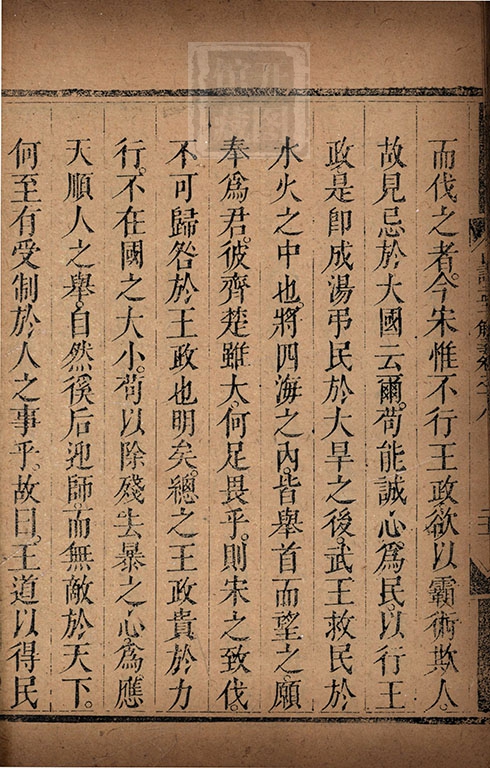 而伐之者。今宋惟不行王政。欲以霸術欺人。
故見忌於大國云爾。苟能誠心爲民。以行王
政。是卽成湯弔民於大旱之後。武王救民於
水火之中也。將四海之內。皆舉首而望之。願
奉爲君。彼齊楚雖大。何足畏乎。則宋之致伐。
不可歸咎於王政也明矣。總之王政貴於力
行。不在國之大小。苟以除殘去暴之心。爲應
天順人之舉。自然徯后迎師。而無敵於天下。
何至有受制於人之事乎。故曰。王道以得民